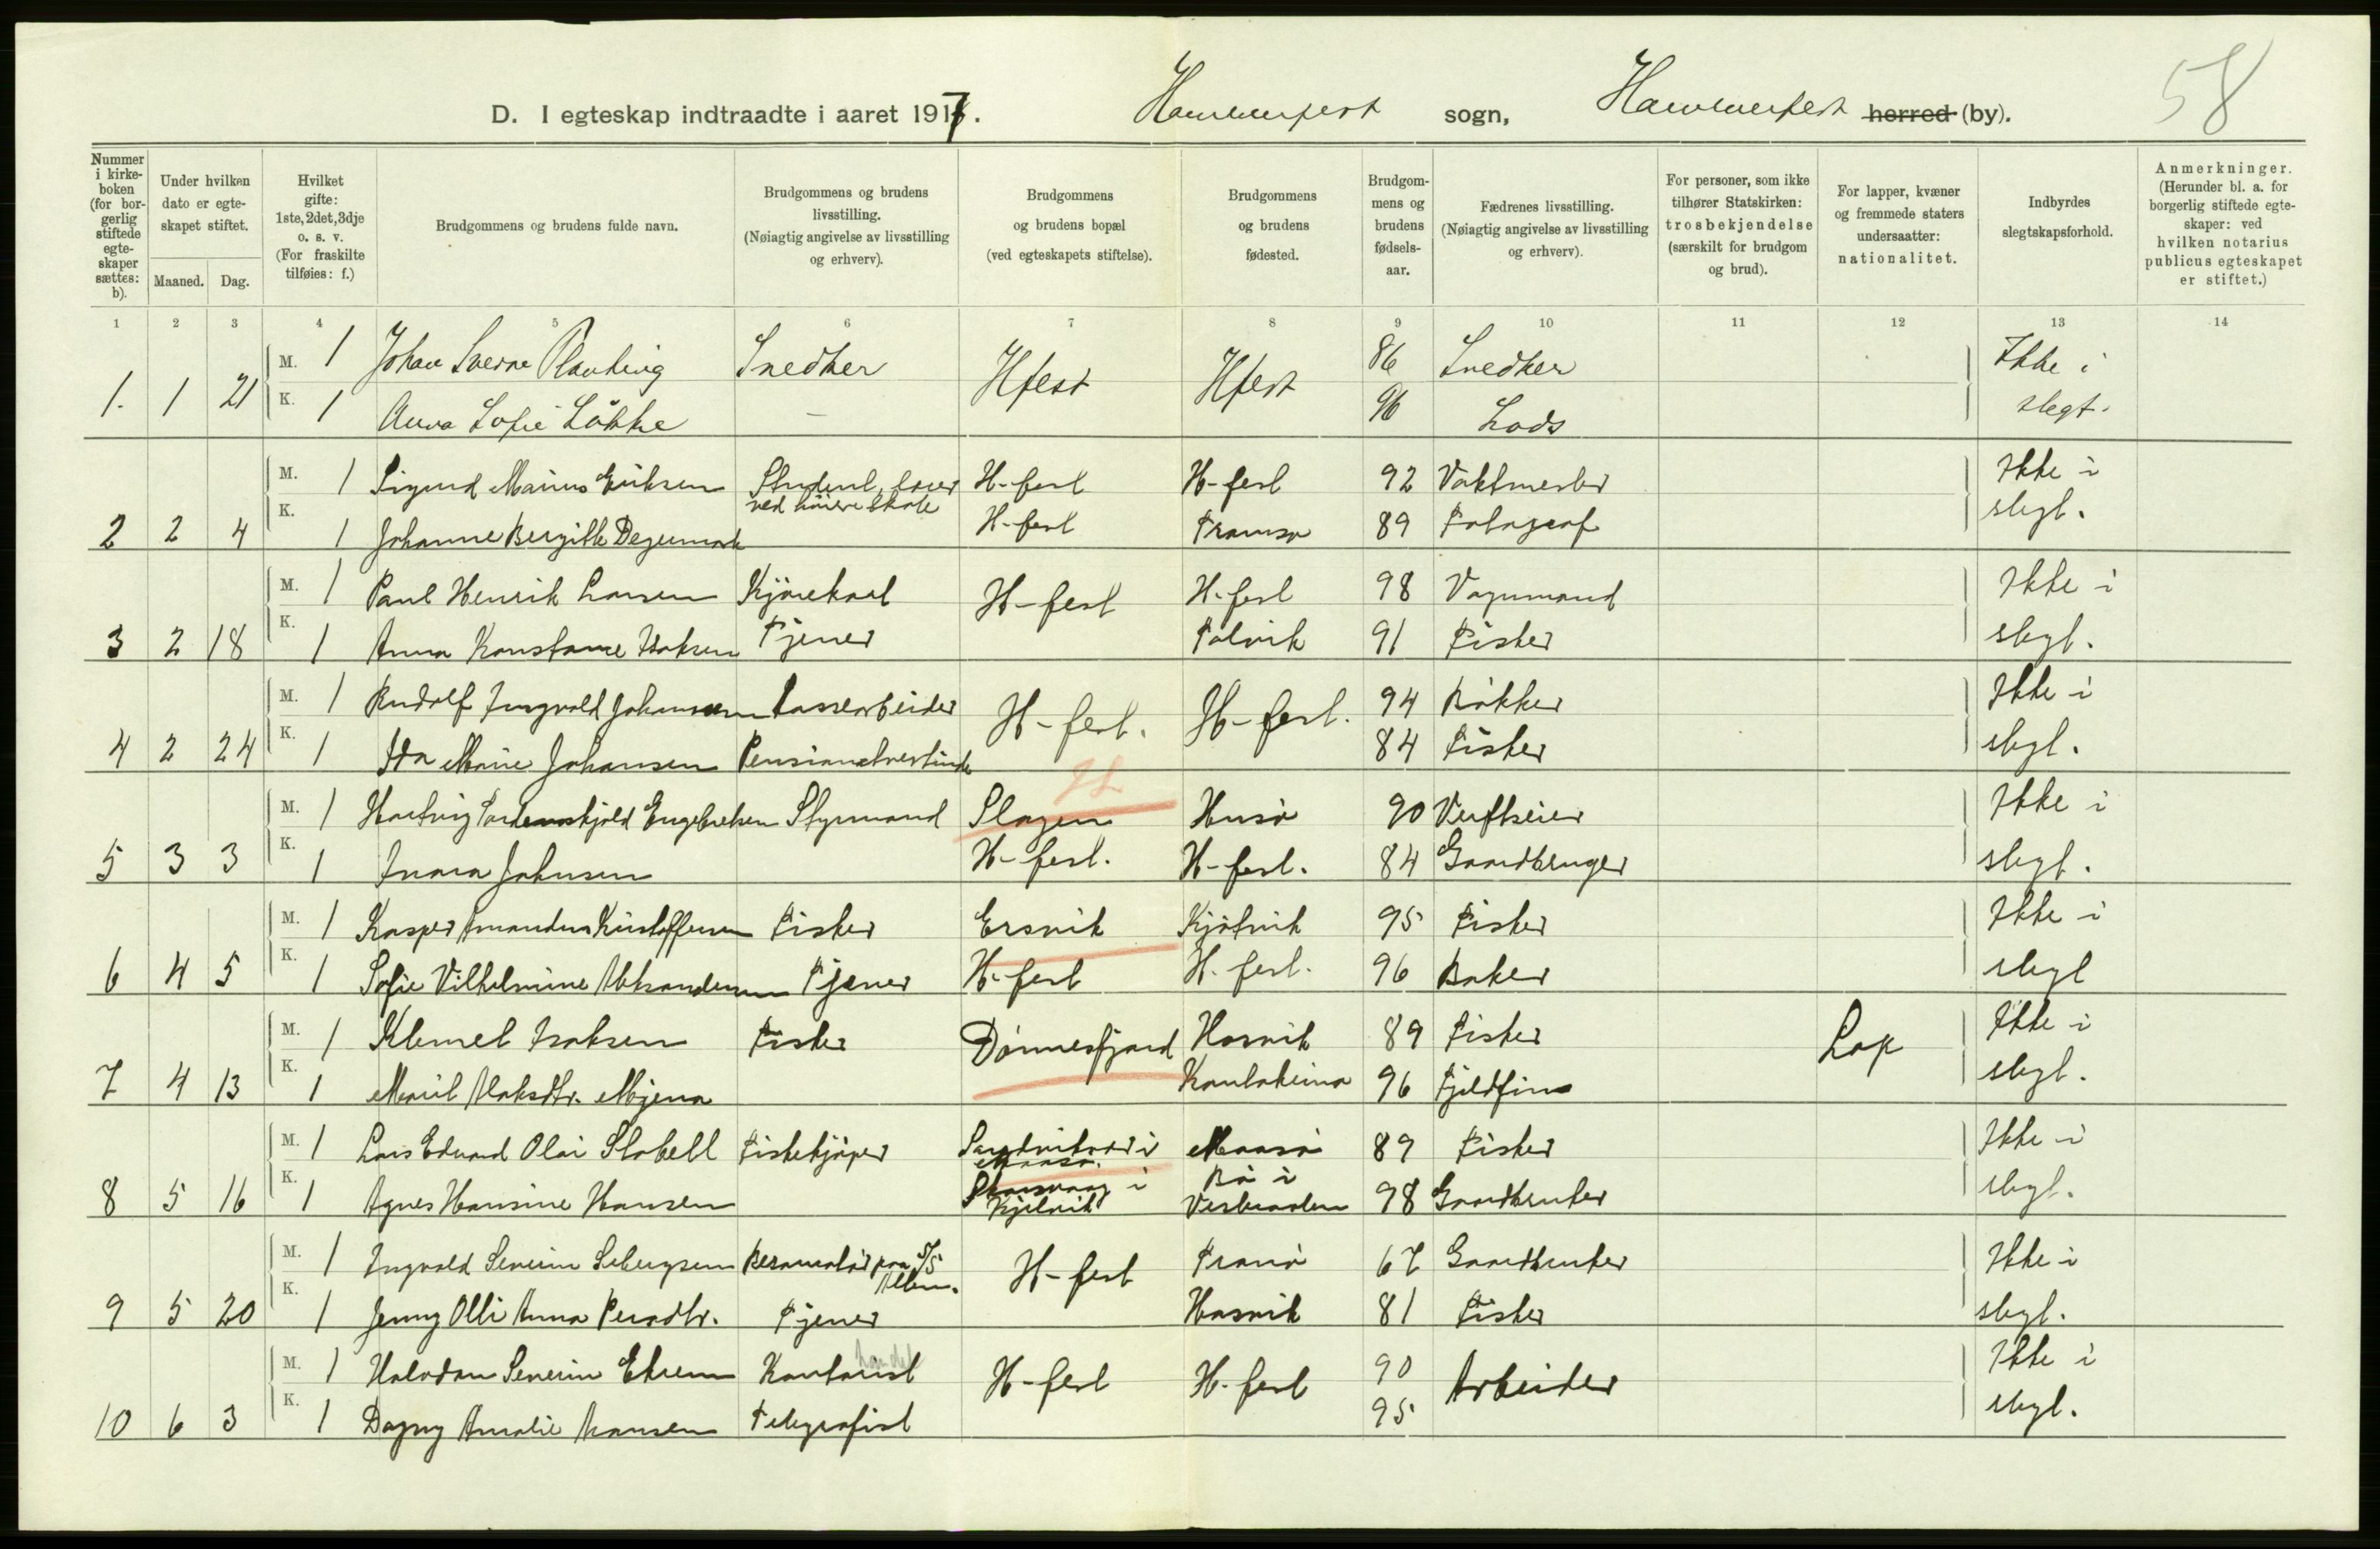 58
D. I egteskap indtraadte i aaret 1917. Hammerfest sogn, Hammerfest herred (by).
Nummer i kirke-boken (for bor-gerlig stiftede egte-skaper sættes: b).
Under hvilken dato er egte-skapet stiftet.
Maaned. Dag.
Hvilket gifte: 1ste, 2det, 3dje o. s. v. (For fraskilte tilføies: f.)
Brudgommens og brudens fulde navn.
Brudgommens og brudens livsstilling. (Nøiagtig angivelse av livsstilling og erhverv).
Brudgommens og brudens bopæl (ved egteskapets stiftelse).
Brudgommens og brudens fødested.
Brudgom-mens og brudens fødsels-aar.
Fædrenes livsstilling. (Nøiagtig angivelse av livsstilling og erhverv).
For personer, som ikke tilhører Statskirken: trosbekjendelse (særskilt for brudgom og brud).
For lapper, kvæner og fremmede staters undersaatter: nationalitet.
Indbyrdes slegtskapsforhold.
Anmerkninger. (Herunder bl. a. for borgerlig stiftede egte-skaper: ved hvilken notarius publicus egteskapet er stiftet.)
1 2 3 4 5 6 7 8 9 10 11 12 13 14
M. 1 Johan Sverre Snedker Hfest Hfest 86 Snedker Ikke i
1. 1 21 K. 1 Anna Sofie Løkke — 96 Lods slegt.
M. 1 Sigurd Marius Eriksen Student, lærer ved höiere skole H-fest H-fest 92 Vaktmester Ikke i
2 2 4 K. 1 Johanne Bergitte Degermark H-fest Tromsø 89 Fotograf slegt.
M. 1 Paul Henrik Larsen Kjørekarl H-fest H-fest 98 Vognmand Ikke i
3 2 18 K. 1 Anna Konstance Isaksen Tjener Talvik 91 Fisker slegt.
M. 1 Rudolf Ingvald Johansen H-fest. H-fest. 94 Bøkker Ikke i
4 2 24 K. 1 Ida Marie Johansen Pensionatvertinde 84 Fisker slegt.
M. 1 Hartvig Engebretsen Styrmand Slagen Husø 90 Verftseier Ikke i
5 3 3 K. 1 Inara Johnsen H-fest. H-fest. 84 Gaardbruger slegt.
M. 1 Kasper Amandus Kristoffersen Fisker Ersvik Kjøtvik 95 Fisker Ikke i
6 4 5 K. 1 Sofie Vilhelmine Aleksandersen Tjener H-fest H-fest. 96 Baker slegt
M. 1 Klemet Isaksen Fisker Dønnesfjord Hasvik 89 Fisker Lap Ikke i
7 4 13 K. 1 Marit Aslaksdtr. Kautokeino 96 Fjeldfin slegt.
M. 1 Lars Edvard Olai Stabell Fiskekjøper Sandvikvær i Maasø. Maasø 89 Fisker Ikke i
8 5 16 K. 1 Agnes Hansine Hansen Skarsvaag i Kjelvik Bø i Vesteraalen 98 Gaardbruker slegt.
M. 1 Ingvald Severin Restauratør paa S/S H-fest Tranø 67 Gaardbruker Ikke i
9 5 20 K. 1 Jenny Olli Anna Persdtr. Tjener Hasvik 81 Fisker slegt.
M. 1 Halvdan Severin Kontorist handel H-fest H-fest 90 Arbeider Ikke i
10 6 3 K. 1 Dagny Amalie Hansen Telegrafist 95 slegt.